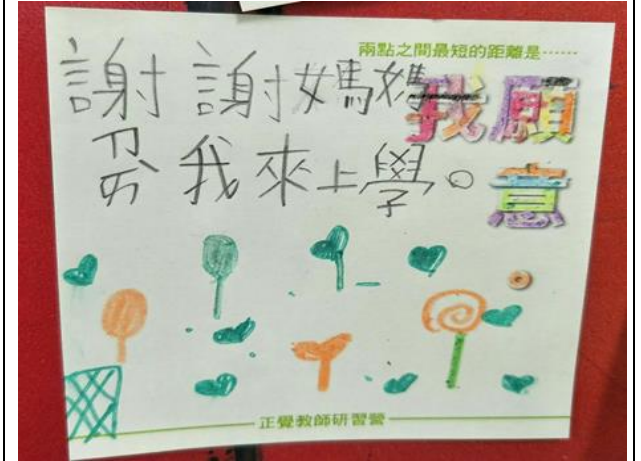 兩點之間最短的距離是……
我願意
謝謝媽媽
ㄗㄞˋ我來上學。
正覺教師研習營